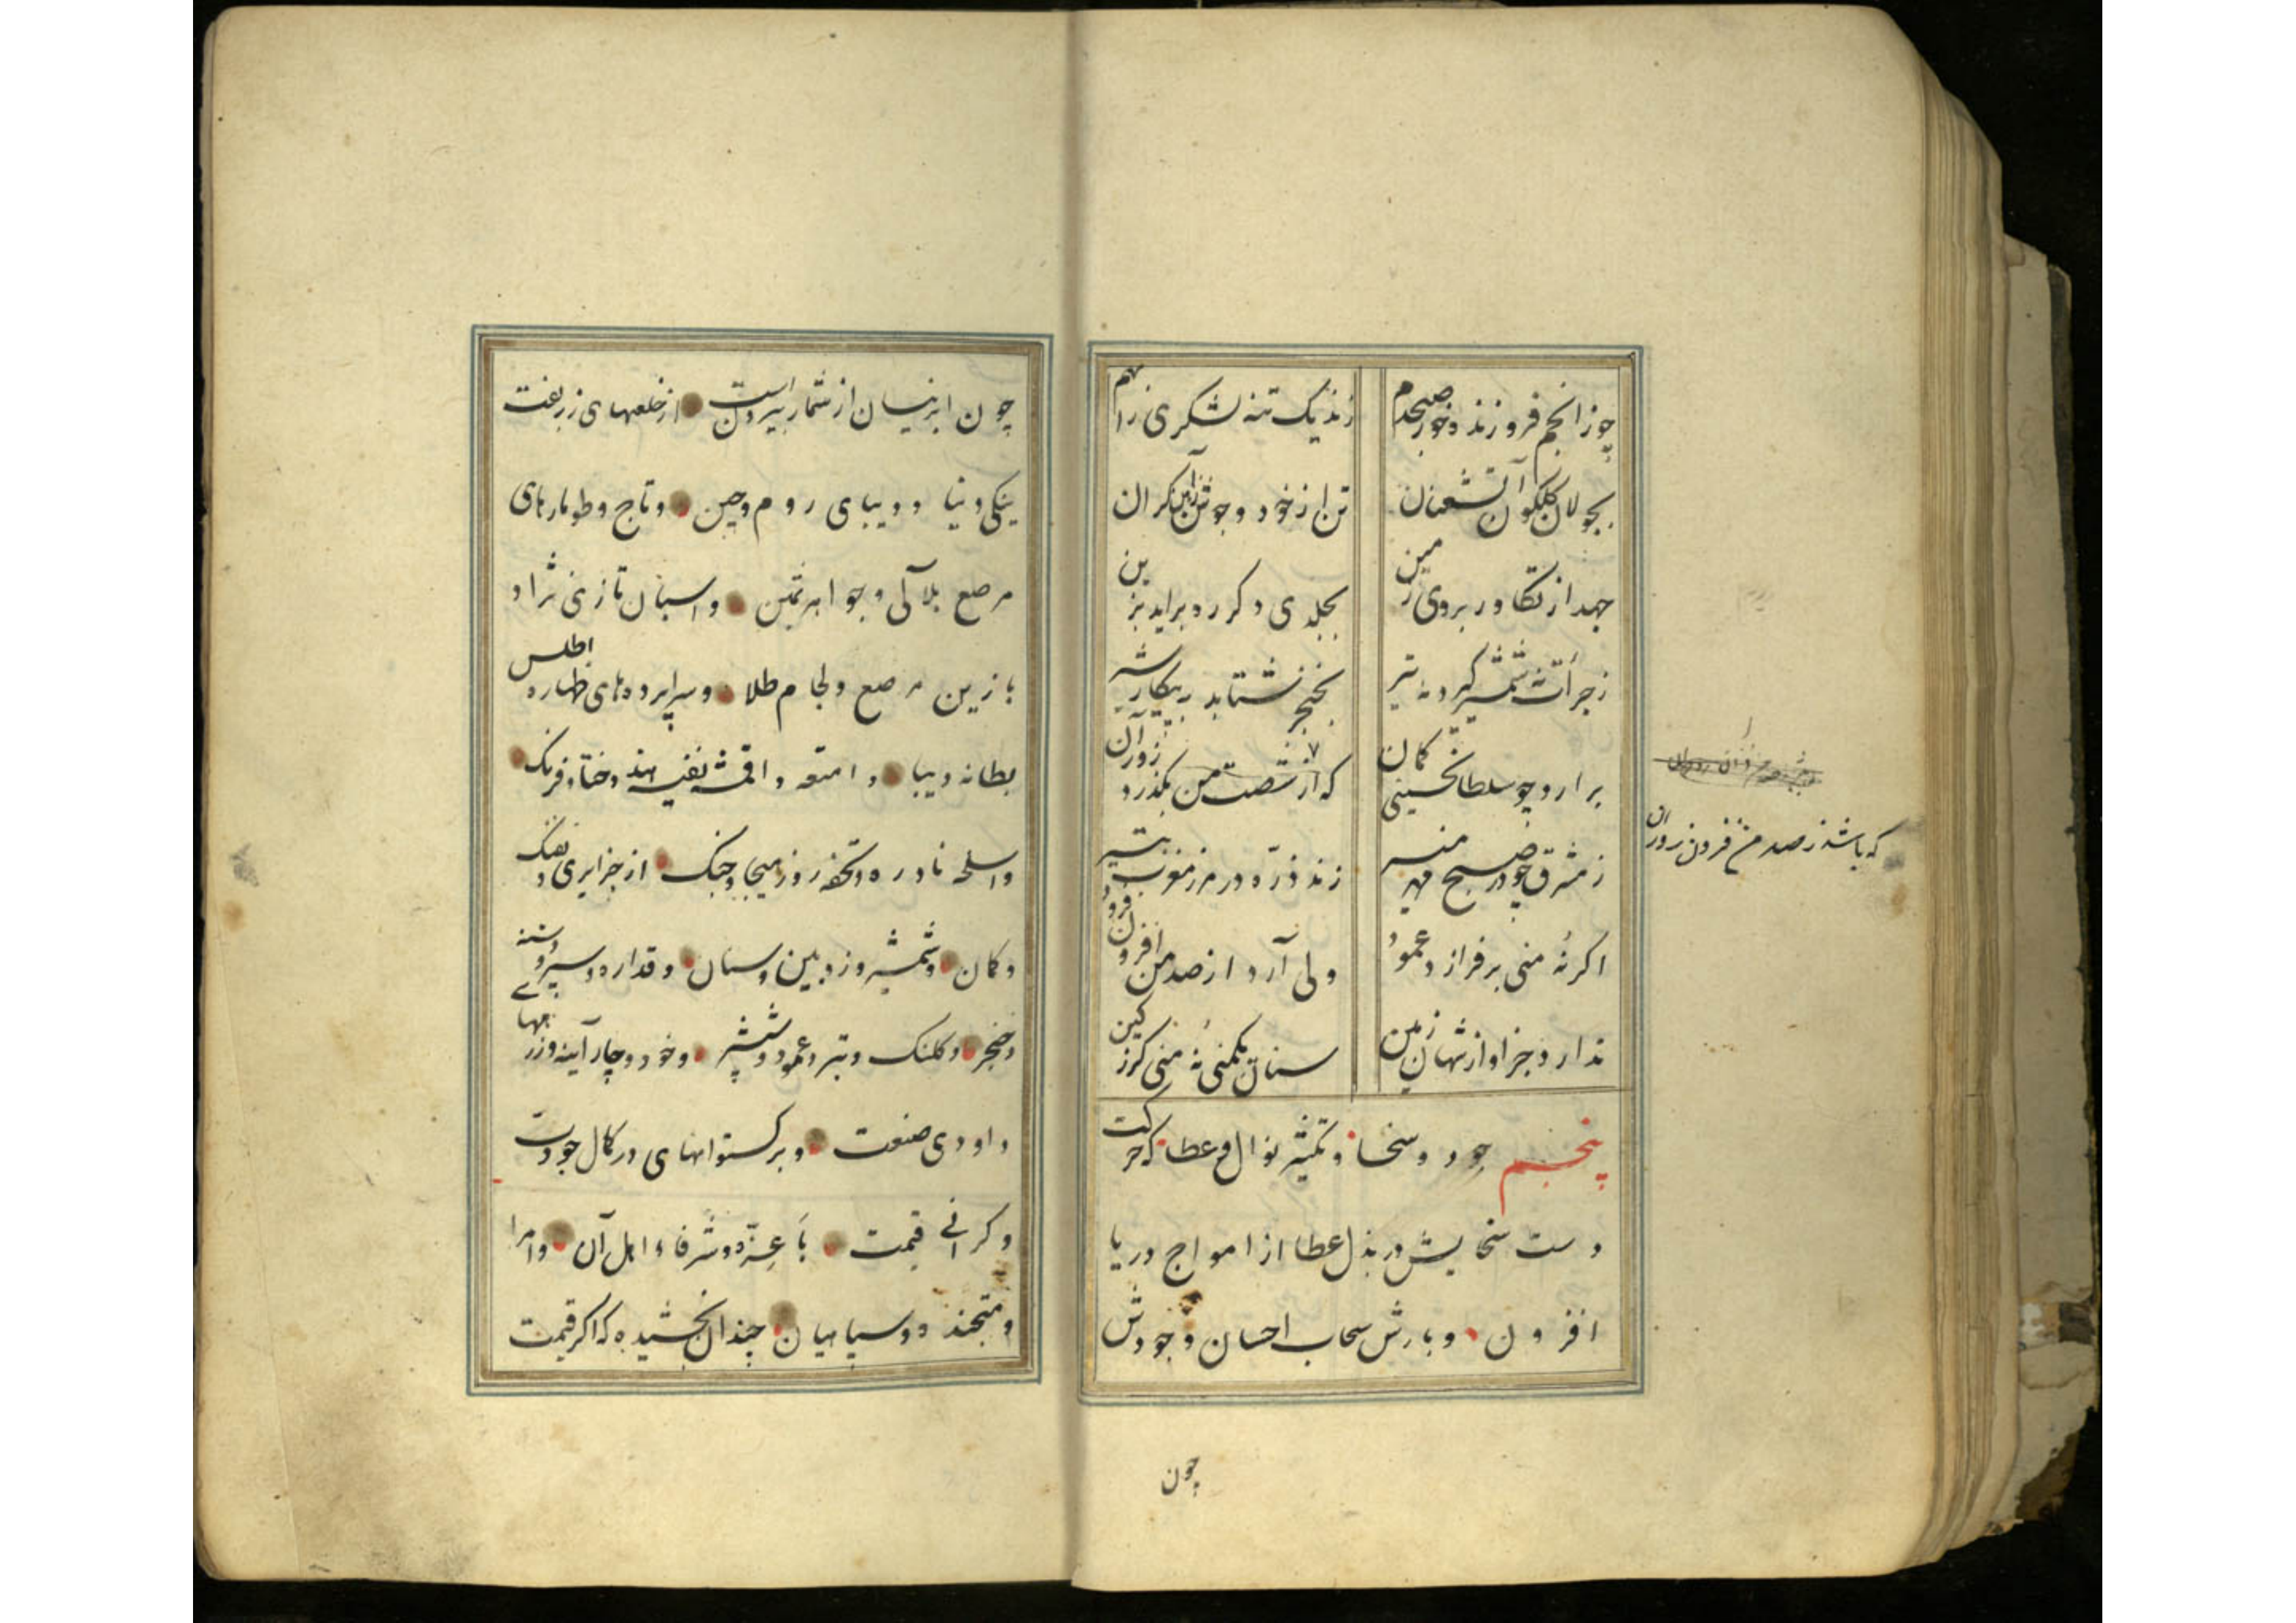 چوز انجم فروزنده خور صبحدم زند یک تنه لشکری را بهم
بجولان گلگون آتش عنان تن از خود و جوشن آهن گران
جهد از تکاور بروی زمین بجلدی دگر ره برآید بزین
ز جرأت نه شمشیر گیرد نه تیر بخنجر شتابد به پیکار شیر
برآرد چو سلطان حسینی کمان که از شصت من بگذرد زور آن
که باشد ز صد من فزون زور آن
ز مشرق چو در صبح مهر منیر زند ذره در مرز مغرب بتیر
اگر نُه منی برفرازد عمود ولی آرد از صد من افزون فرود
ندارد جز او از شهان زمین سنان یکمنی نُه منی گرز کین
پنجم جود و سخا و تکثیر نوال و عطا که حرکت
دست سخایش در بذل عطا از امواج دریا
افزون و بارش سحاب احسان وجودش
چون
چون ابر نیسان از شمار بیرون است از خلعهای زربفت
ینکی دنیا و دیبای روم و چین و تاج و طومارهای
مرصع بلآلی و جواهر ثمین و اسبان تازی نژاد
با زین مرصع ولجام طلا و سراپرده‌های ظهاره اطلس
بطانه دیبا و امتعه و اقمشه نفیسه هند و ختا و فرنک
و اسلحه نادره و تحفه روز هیجا و جنک از جزایری و تفنک
و کمان و شمشیر و زوبین و سنان و قداره و سپر و دشنه
و خنجر و کلنک و تبر و عمود و ششپر و خود و چارآینه و زرههای
داودی صنعت و برکستوانهای در کمال جودت
و کرانی قیمت با عزّه و شرفاء اهل آن و امرا
و متجنده و سپاهیان چندان بخشیده که اکر قیمت